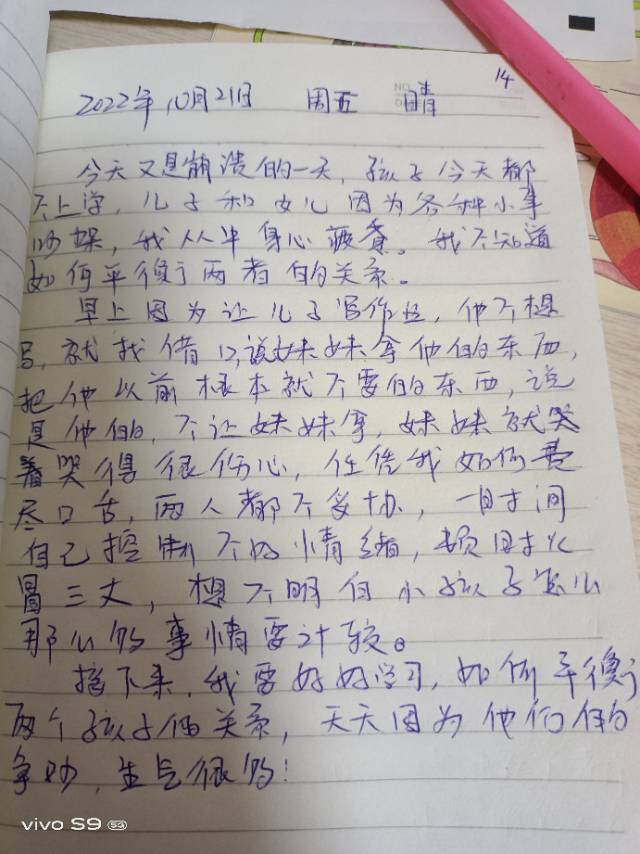 14
2022年10月21日 周五 晴
NO.
今天又是崩溃的一天,孩子今天都
不上学,儿子和女儿因为各种小事
吵架,我从半身心疲惫。我不知道
如何平衡了两者的关系。
早上因为让儿子写作业,他不想
写,就找借口,说妹妹拿他的东西,
把他以前根本就不要的东西,说
是他的,不让妹妹拿,妹妹就哭
着哭得很伤心,任凭我如何费
尽口舌,两人都不妥协,一时间
自己控制不的情绪,顿时火
冒三丈,想不明白小孩子怎么
那么多事情要计较。
接下来,我要好好学习,如何平衡
两个孩子们关系,天天因为他们的
争吵,生气很多!
vivo S9